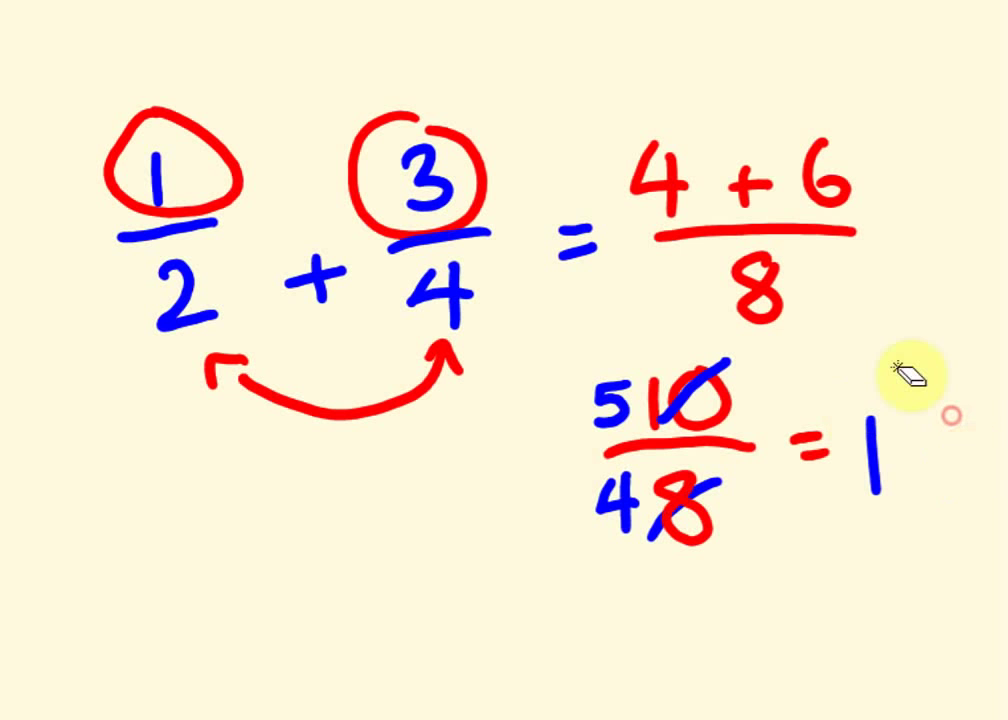 1/2 + 3/4 = (4 + 6)/8
5 10/4 8 = 1